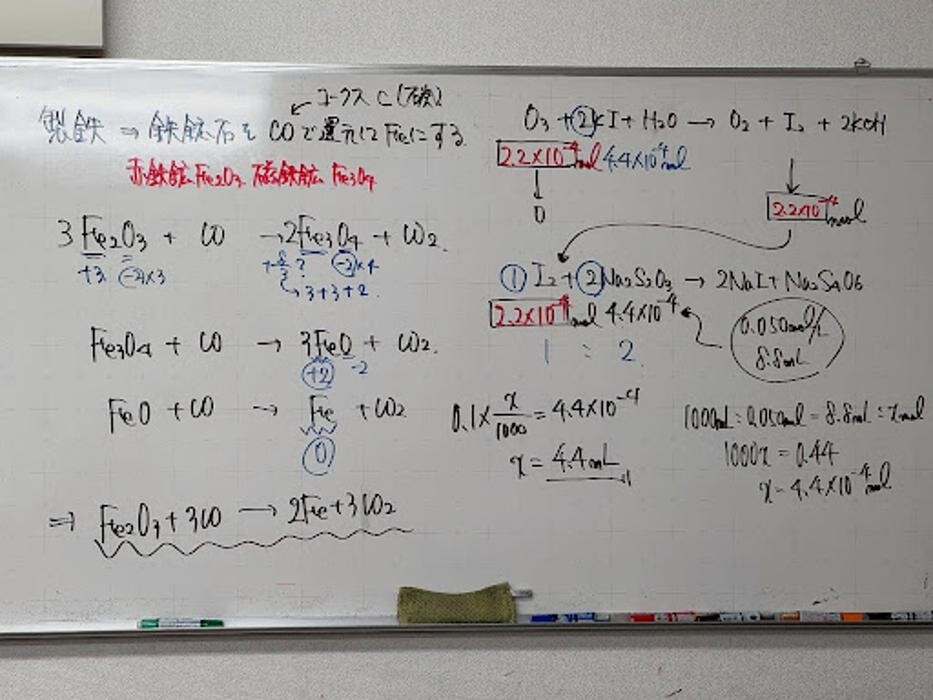 コークス C(石炭)
製鉄 ⇒ 鉄鉱石を COで還元に Feにする
赤鉄鉱 Fe2O3. 磁鉄鉱 Fe3O4
3Fe2O3 + CO → 2Fe3O4 + CO2.
+3 (-2)×3 +8/3? (-2)×4
↳3+3+2.
Fe3O4 + CO → 3FeO + CO2.
+2 -2
FeO + CO → Fe + CO2
0
⇒ Fe2O3 + 3CO → 2Fe + 3CO2
O3 + 2KI + H2O → O2 + I2 + 2KOH
2.2×10⁻⁴mol 4.4×10⁻⁴mol
↓ ↓
0 2.2×10⁻⁴mol
1 I2 + 2 Na2S2O3 → 2NaI + Na2S4O6
2.2×10⁻⁴mol 4.4×10⁻⁴ ← 0.050mol/L
8.8mL
1 : 2
0.1 × x/1000 = 4.4×10⁻⁴
x = 4.4mL
1000mL : 0.050mol = 8.8mL : xmol
1000x = 0.44
x = 4.4×10⁻⁴mol